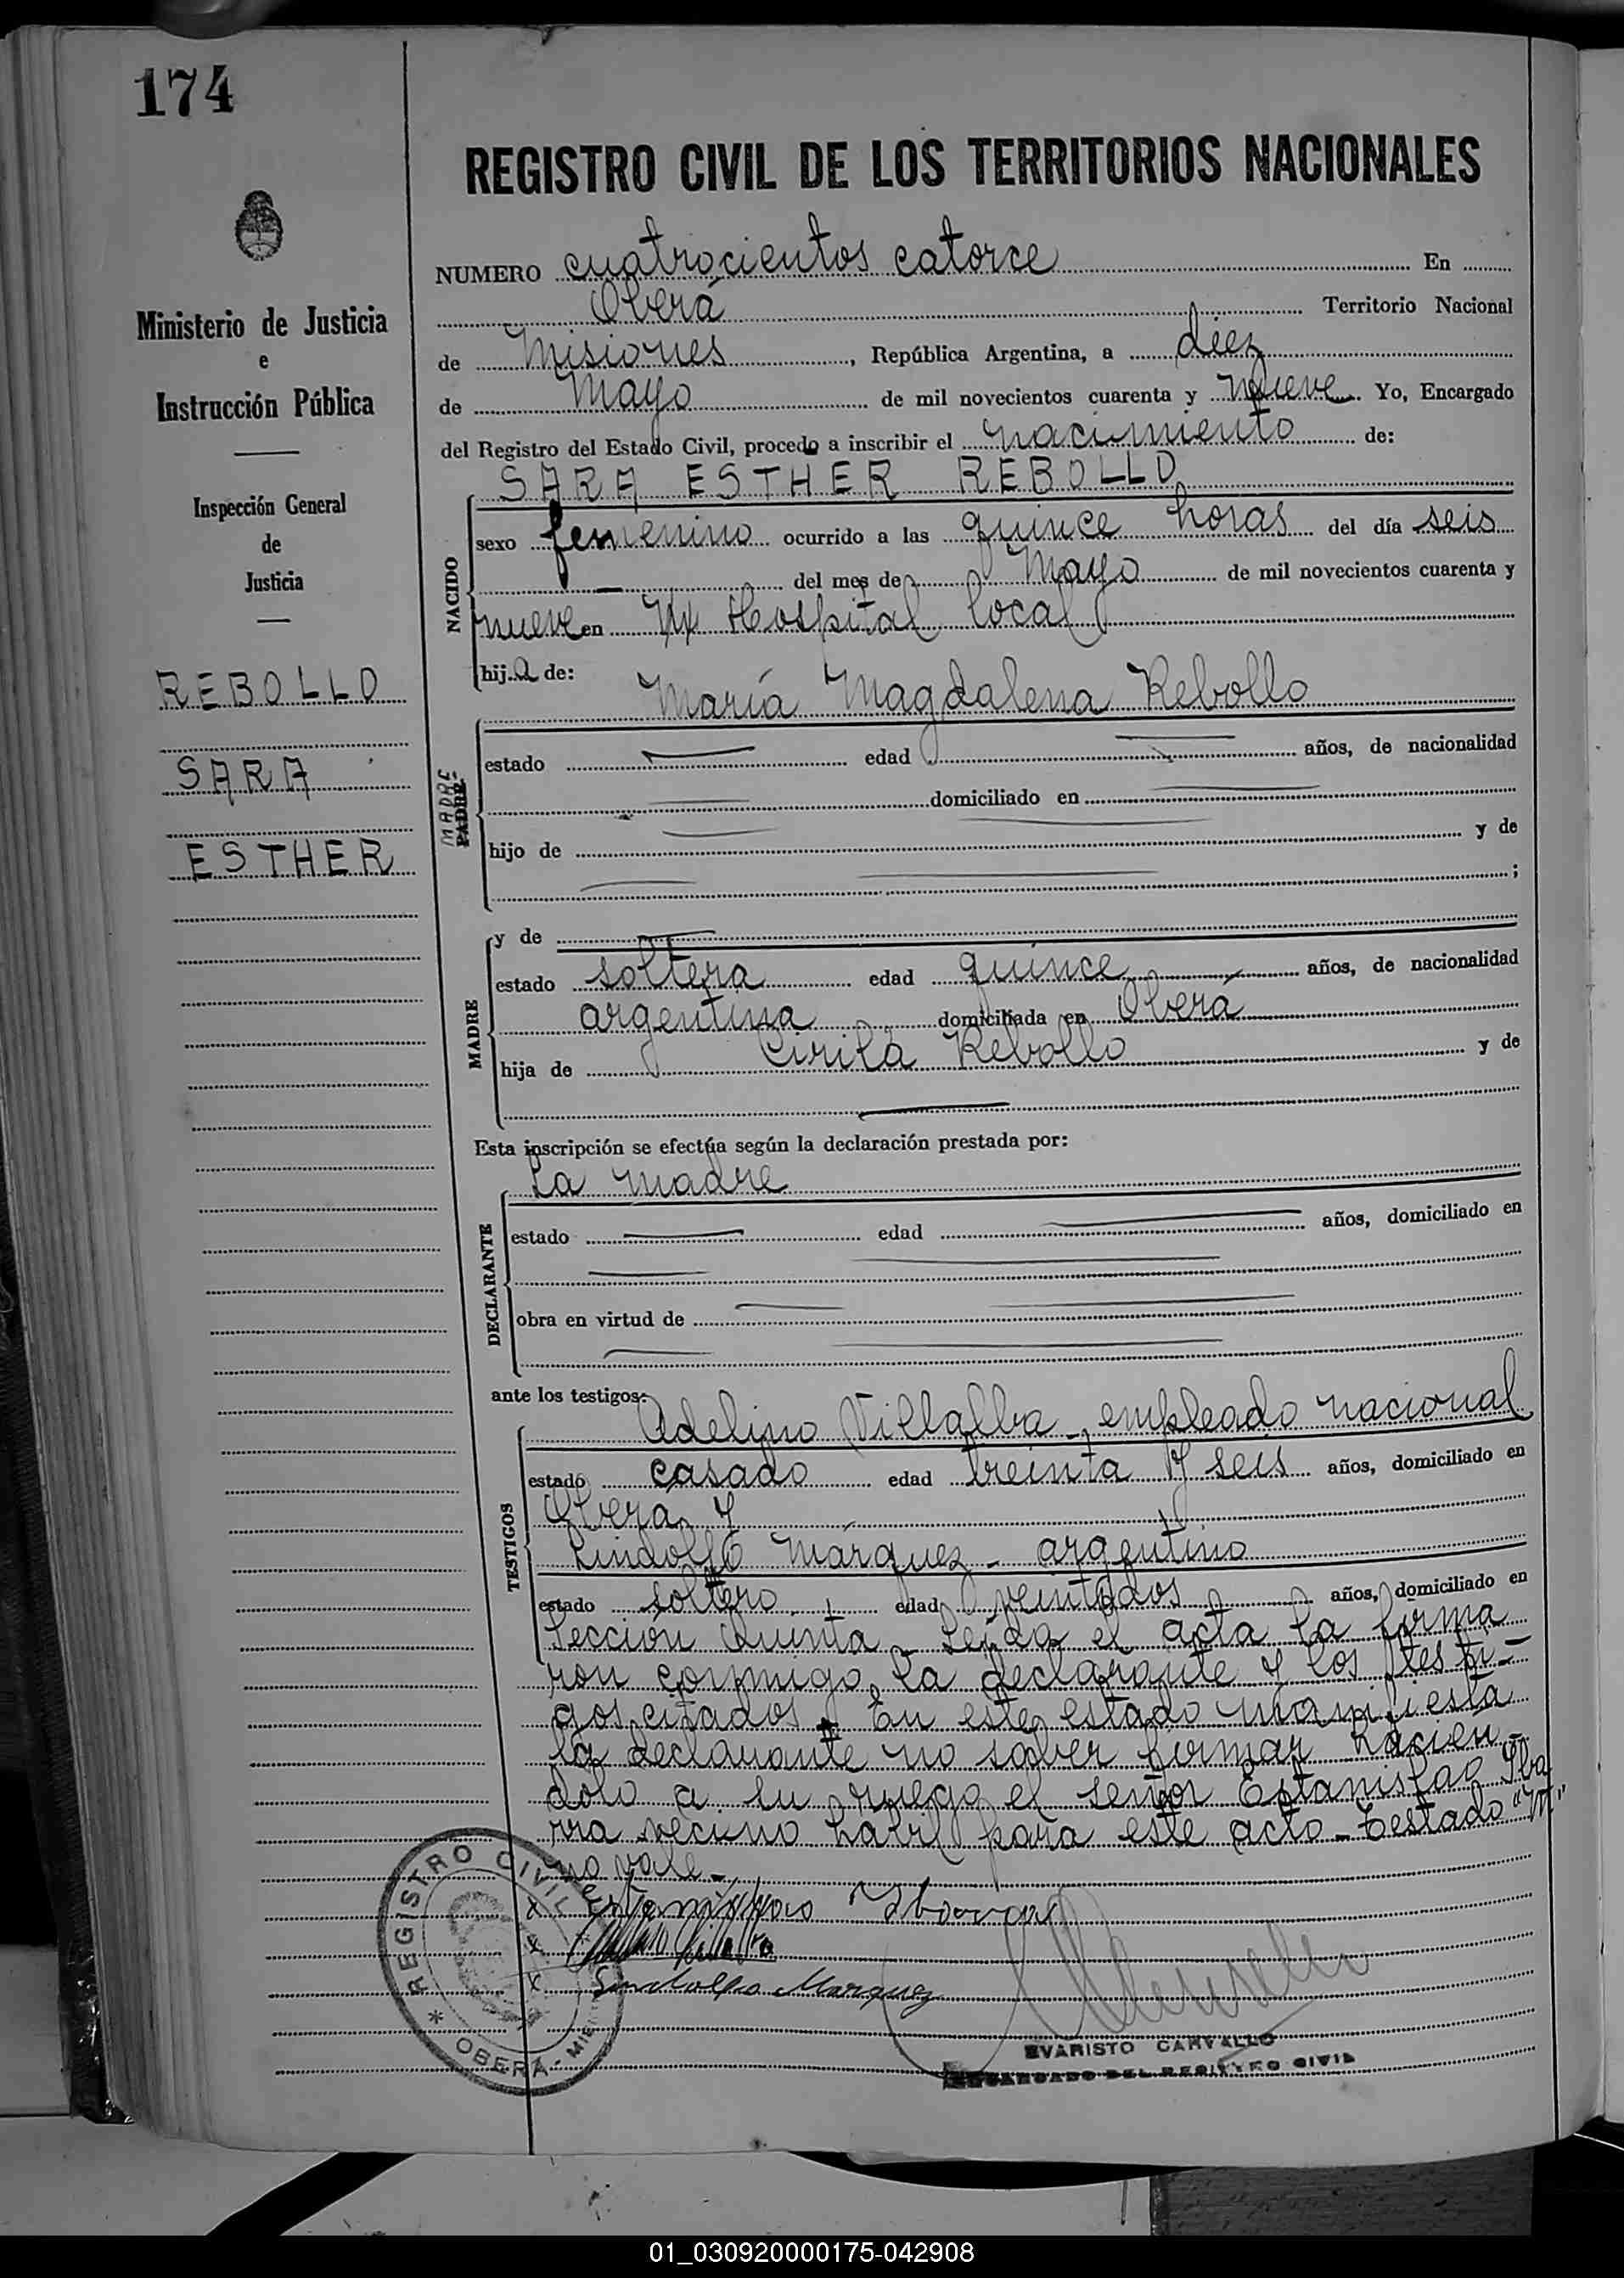 174
REGISTRO CIVIL DE LOS TERRITORIOS NACIONALES
Ministerio de Justicia
e
Instrucción Pública
Inspección General
de
Justicia
REBOLLO
SARA
ESTHER
NUMERO cuatrocientos catorce En
Oberá Territorio Nacional
de Misiones, República Argentina, a diez
de Mayo de mil novecientos cuarenta y nueve. Yo, Encargado
del Registro del Estado Civil, procedo a inscribir el nacimiento de:
SARA ESTHER REBOLLO
NACIDO
sexo femenino ocurrido a las quince horas del día seis
del mes de Mayo de mil novecientos cuarenta y
nueve en Hospital local
hija de:
María Magdalena Rebollo
MADRE
PADRE
estado edad años, de nacionalidad
domiciliado en
hijo de y de
;
y de
MADRE
estado soltera edad quince años, de nacionalidad
argentina domiciliada en Oberá
hija de Cirila Rebollo y de
Esta inscripción se efectúa según la declaración prestada por:
La madre
DECLARANTE
estado edad años, domiciliado en
obra en virtud de
ante los testigos:
Adelino Villalba - empleado nacional
TESTIGOS
estado casado edad treinta y seis años, domiciliado en
Oberá y
Lindolfo Márquez - argentino
estado soltero edad veintidos años, domiciliado en
Sección Quinta - Leída el acta la firma
ron conmigo, la declarante y los testi-
gos citados. En este estado manifiesta
la declarante no saber firmar hacien-
dolo a su ruego el señor Estanislao Iba
rra vecino habil para este acto - Testado "M"
no vale -
x Estanislao Ibarra
x
x Lindolfo Marquez
REGISTRO CIVIL
* OBERÁ - MIS
EVARISTO CARVALLO
ENCARGADO DEL REGISTRO CIVIL
01_030920000175-042908